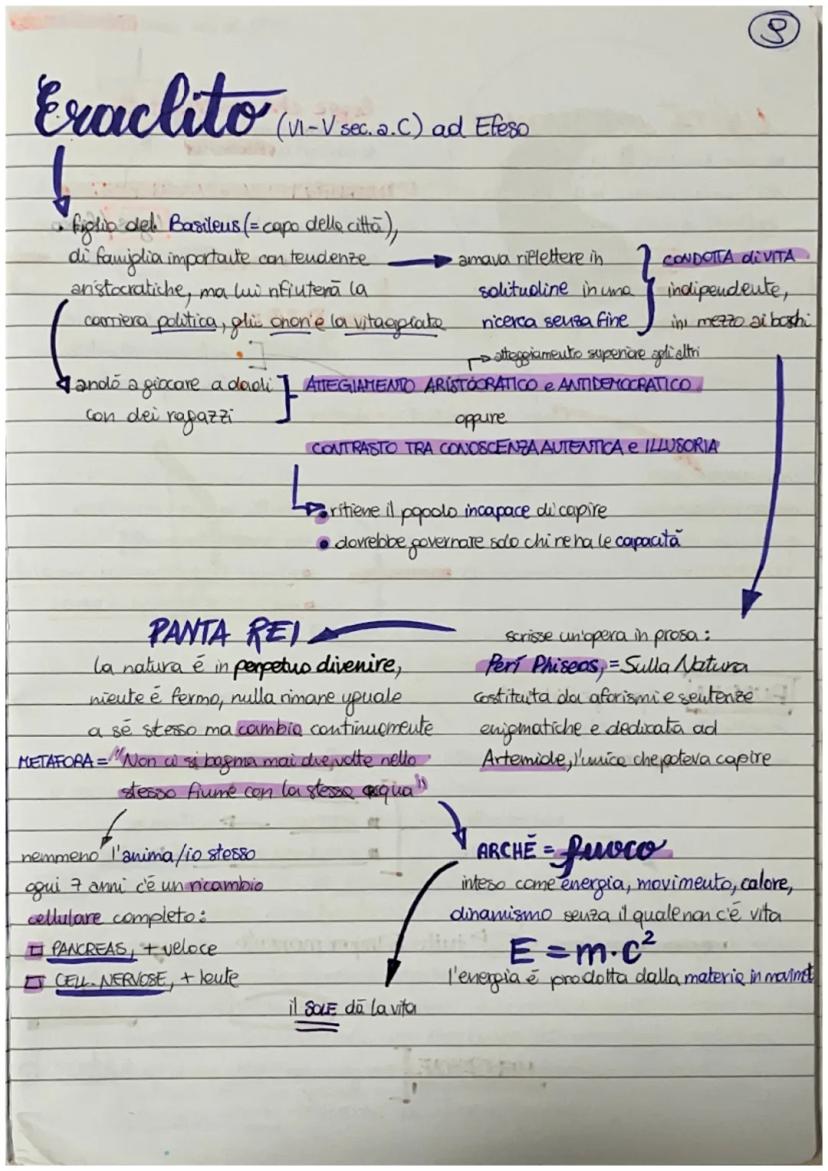 9
Eraclito (VI-V sec. a.C) ad Efeso
• figlio del Basileus (= capo della città),
di famiglia importante con tendenze
aristocratiche, ma lui rifiuterà la
carriera politica, gli onori e la vita agiata
amava riflettere in
solitudine in una
ricerca senza fine
CONDOTTA di VITA
indipendente,
in mezzo ai boschi
andò a giocare a dadi
con dei ragazzi
atteggiamento superiore agli altri
ATTEGIAMENTO ARISTOCRATICO e ANTIDEMOCRATICO
oppure
CONTRASTO TRA CONOSCENZA AUTENTICA e ILLUSORIA
• ritiene il popolo incapace di capire
• dovrebbe governare solo chi ne ha le capacità
scrisse un'opera in prosa:
Perí Phiseos, = Sulla Natura
costituita da aforismi e sentenze
enigmatiche e dedicata ad
Artemide, l'unica che poteva capire
PANTA REI
la natura é in perpetuo divenire,
niente é fermo, nulla rimane uguale
a sé stesso ma cambia continuamente
METAFORA = "Non ci si bagna mai due volte nello
stesso fiume con la stessa acqua"
nemmeno l'anima/io stesso
ogni 7 anni c'é un ricambio
cellulare completo:
PANCREAS, + veloce
CELL. NERVOSE, + lente
ARCHÉ = fuoco
inteso come energia, movimento, calore,
dinamismo senza il quale non c'é vita
E = m·c²
l'energia é prodotta dalla materia in movimet
il SOLE dà la vita